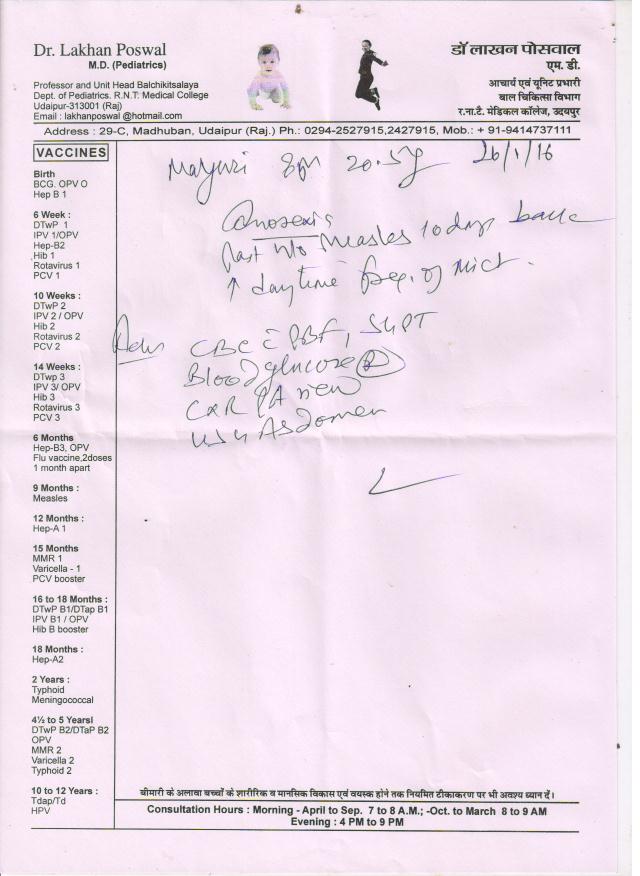 Dr. Lakhan Poswal
M.D. (Pediatrics)
Professor and Unit Head Balchikitsalaya
Dept. of Pediatrics. R.N.T. Medical College
Udaipur-313001 (Raj)
Email : lakhanposwal @hotmail.com
डॉ लाखन पोसवाल
एम. डी.
आचार्य एवं यूनिट प्रभारी
बाल चिकित्सा विभाग
र.ना.टै. मेडिकल कॉलेज, उदयपुर
Address : 29-C, Madhuban, Udaipur (Raj.) Ph.: 0294-2527915,2427915, Mob.: + 91-9414737111
VACCINES
Birth
BCG. OPV O
Hep B 1
6 Week :
DTwP 1
IPV 1/OPV
Hep-B2
Hib 1
Rotavirus 1
PCV 1
10 Weeks :
DTwP 2
IPV 2 / OPV
Hib 2
Rotavirus 2
PCV 2
14 Weeks :
DTwp 3
IPV 3/ OPV
Hib 3
Rotavirus 3
PCV 3
6 Months
Hep-B3, OPV
Flu vaccine,2doses
1 month apart
9 Months :
Measles
12 Months :
Hep-A 1
15 Months
MMR 1
Varicella - 1
PCV booster
16 to 18 Months :
DTwP B1/DTap B1
IPV B1 / OPV
Hib B booster
18 Months :
Hep-A2
2 Years :
Typhoid
Meningococcal
4½ to 5 Yearsl
DTwP B2/DTaP B2
OPV
MMR 2
Varicella 2
Typhoid 2
10 to 12 Years :
Tdap/Td
HPV
Mayuri 20.5 26/1/16
Anorexia
Past H/o Measles 10 days back
↑ daytime freq. of mict.
Adv CBC c PBF, SGPT
Blood glucose (R)
CXR PA view
USG Abdomen
बीमारी के अलावा बच्चों के शारीरिक व मानसिक विकास एवं वयस्क होने तक नियमित टीकाकरण पर भी अवश्य ध्यान दें।
Consultation Hours : Morning - April to Sep. 7 to 8 A.M.; -Oct. to March 8 to 9 AM
Evening : 4 PM to 9 PM